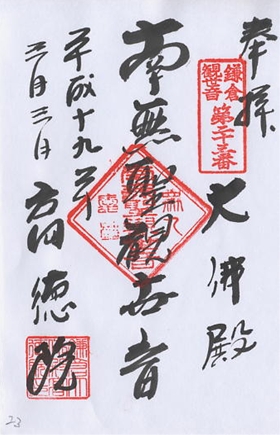 奉拝
鎌倉
観世音
第二十三番
大佛殿
南無聖観世音
平成十九年
三月三日
高徳院
23